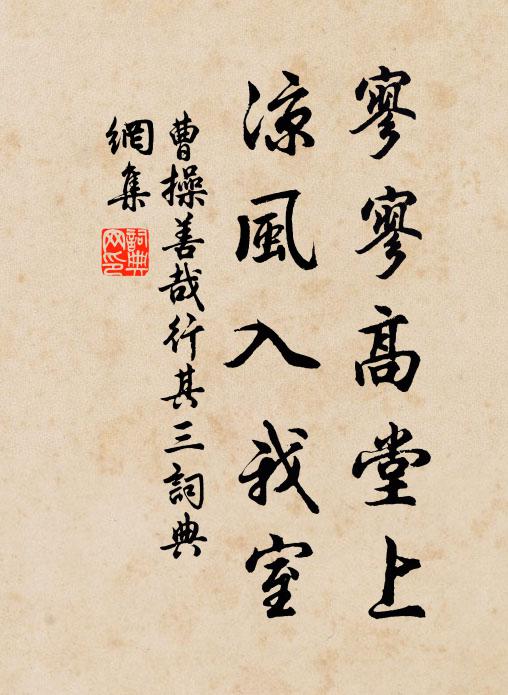 寥寥高堂上
凉風入我室
曹操善哉行其三詞典
網集
詞典
网印